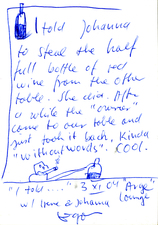 I told Johanna
to steal the half
full bottle of red
wine from the other
table. She did. After
a while the "owner"
came to our table and
just took it back. Kinda
"without words". COOL.
"I told ...." 3 XI 04 "Ange"
w/ Irene & Johanna Lounge